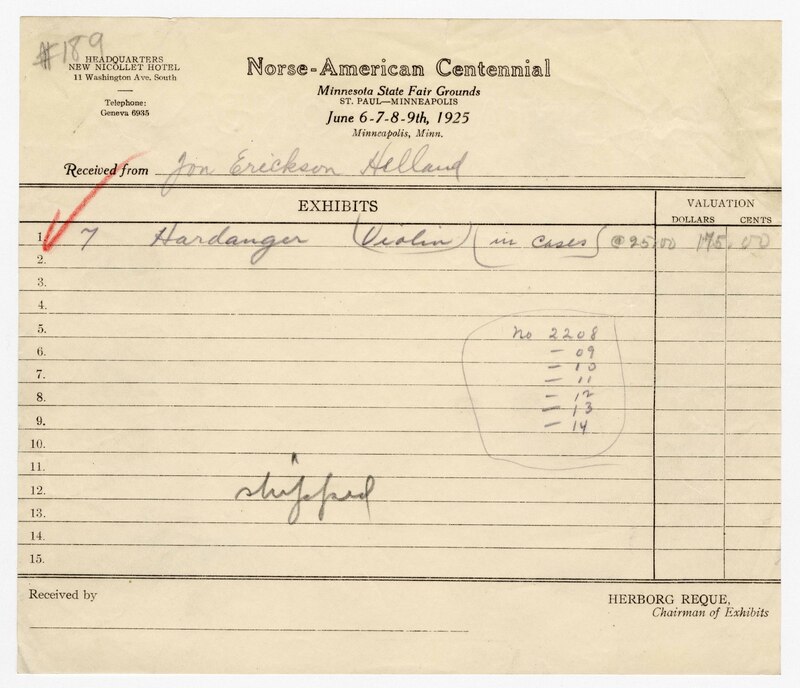 #189
HEADQUARTERS
NEW NICOLLET HOTEL
11 Washington Ave. South
Telephone:
Geneva 6935
Norse-American Centennial
Minnesota State Fair Grounds
ST. PAUL—MINNEAPOLIS
June 6-7-8-9th, 1925
Minneapolis, Minn.
Received from Jon Erickson Helland
EXHIBITS VALUATION
DOLLARS CENTS
1. 7 Hardanger (Violin) (in cases) @ 25.00 175.00
2.
3.
4.
5. No 2208
6. — 09
— 10
7. — 11
8. — 12
— 13
9. — 14
10.
11.
12. shipped
13.
14.
15.
Received by
HERBORG REQUE,
Chairman of Exhibits